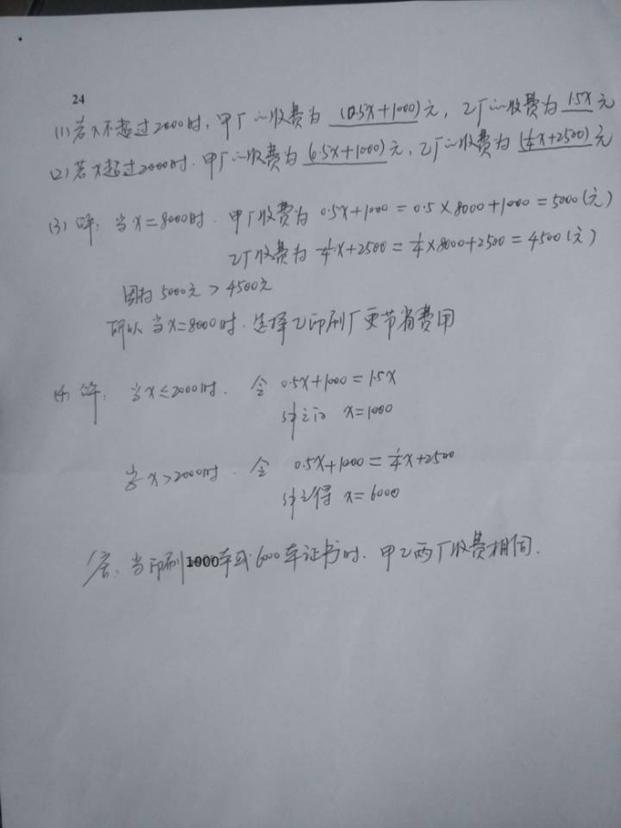 24
(1) 若x不超过2000时,甲厂的收费为 (0.5x+1000)元,乙厂的收费为 1.5x 元
(2) 若x超过2000时.甲厂的收费为 (0.5x+1000)元,乙厂的收费为 (¼x+2500)元
(3) 解:当x=8000时.甲厂收费为 0.5x+1000=0.5×8000+1000=5000(元)
乙厂收费为 ¼x+2500=¼×8000+2500=4500(元)
因为 5000元>4500元
所以 当x=8000时.选择乙印刷厂更节省费用
(4) 解:当x≤2000时.令 0.5x+1000=1.5x
解之得 x=1000
当x>2000时.令 0.5x+1000=¼x+2500
解之得 x=6000
答.当印刷1000本或6000本证书时.甲乙两厂收费相同.